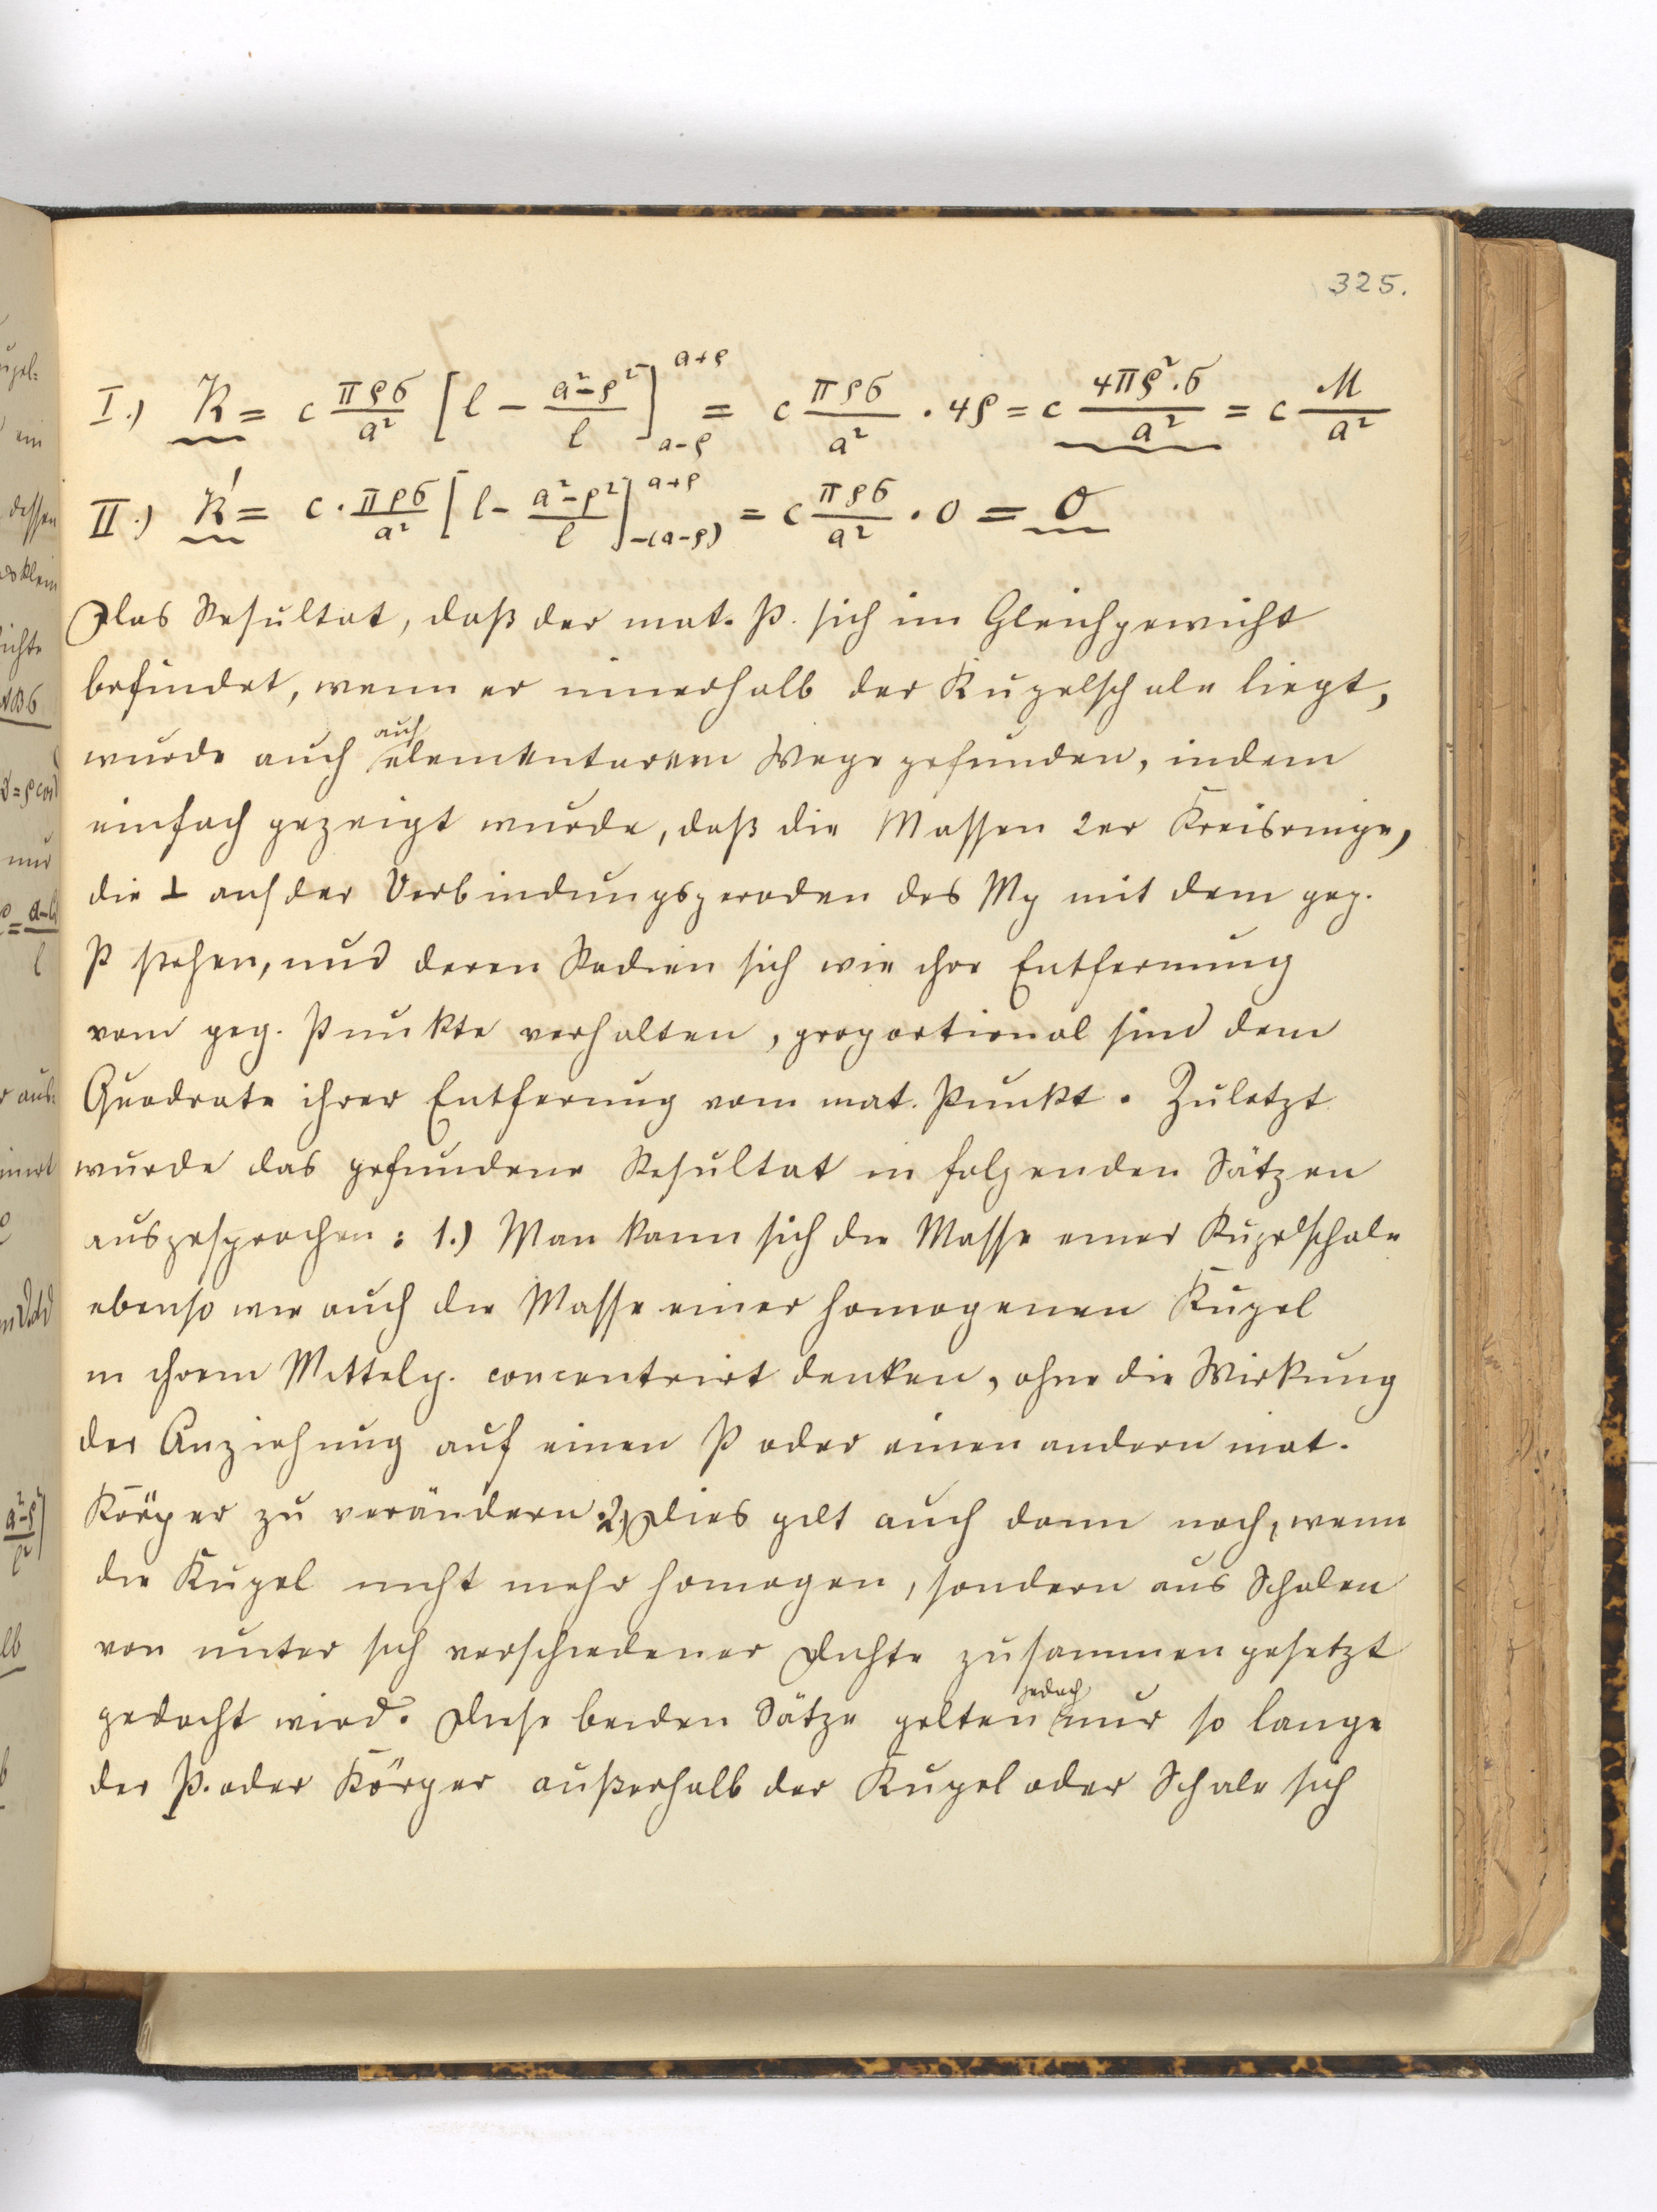 325.
I.) K = c πρσ/a² [l − (a²−ρ²)/l]_{a−ρ}^{a+ρ} = c πρσ/a² · 4ρ = c 4πρ²·σ/a² = c M/a²
II.) K' = c · πρσ/a² [l − (a²−ρ²)/l]_{−(a−ρ)}^{a+ρ} = c πρσ/a² · 0 = 0
Das Resultat, daß der mat. P. sich im Gleichgewicht
befindet, wenn er innerhalb der Kugelschale liegt,
wurde auch auf elementarem Wege gefunden, indem
einfach gezeigt wurde, daß die Massen 2er Kreisringe,
die ⊥ auf der Verbindungsgeraden des Mp mit dem geg.
P stehen, und deren Radien sich wie ihre Entfernung
vom geg. Punkte verhalten, proportional sind dem
Quadrate ihrer Entfernung vom mat. Punkt. Zuletzt
wurde das gefundene Resultat in folgenden Sätzen
ausgesprochen: 1.) Man kann sich die Masse einer Kugelschale
ebenso wie auch die Masse einer homogenen Kugel
in ihrem Mittelp. concentrirt denken, ohne die Wirkung
der Anziehung auf einen P oder einen andern mat.
Körper zu verändern. 2.) Dies gilt auch dann noch, wenn
die Kugel nicht mehr homogen, sondern aus Schalen
von unter sich verschiedener Dichte zusammengesetzt
gedacht wird. Diese beiden Sätze gelten jedoch nur so lange
der P. oder Körper außerhalb der Kugel oder Schale sich